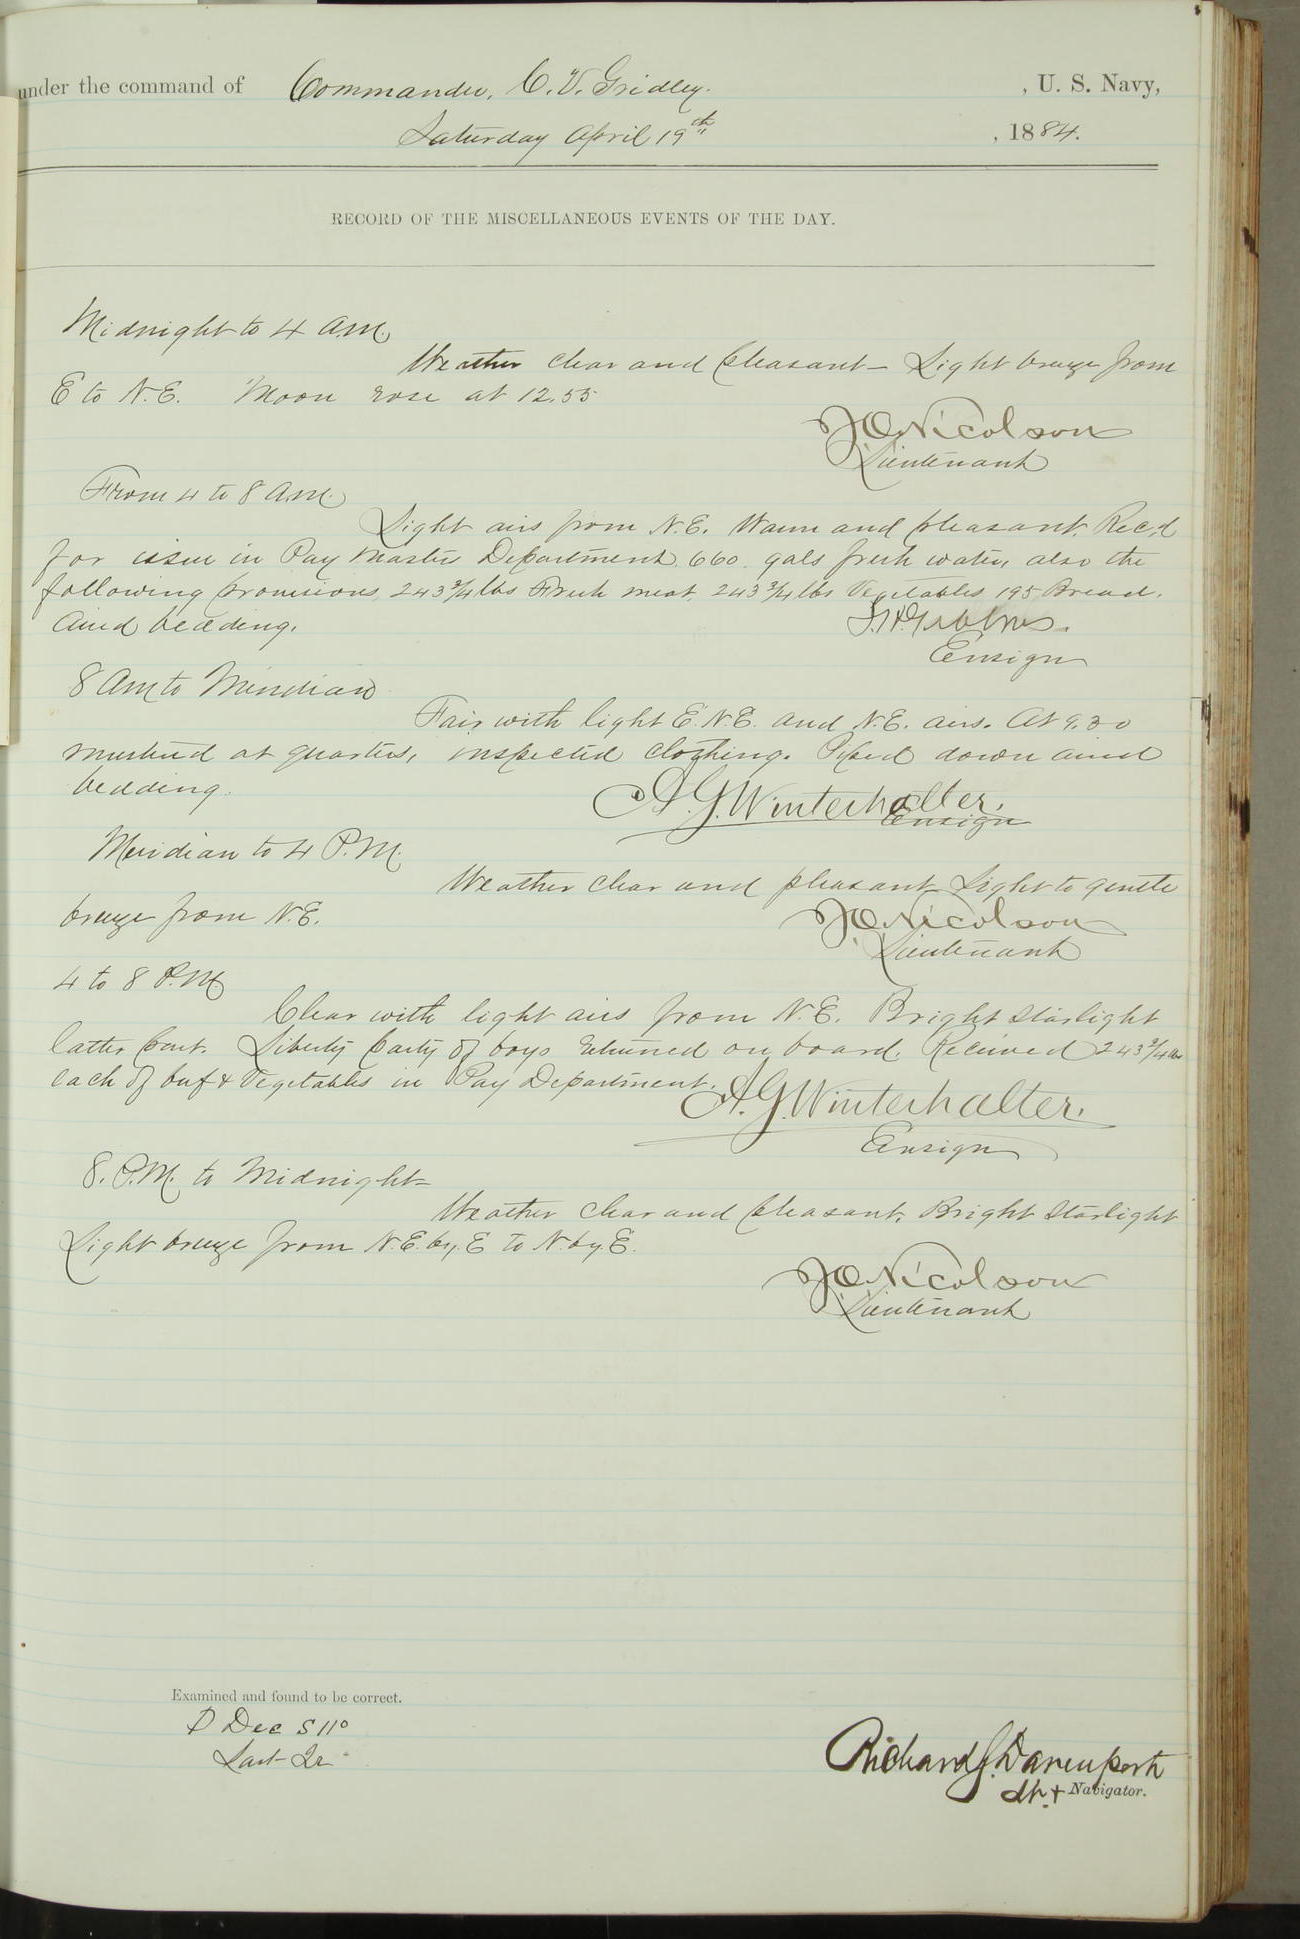 under the command of Commander, C. V. Gridley. , U. S. Navy,
Saturday April 19th , 1884.
RECORD OF THE MISCELLANEOUS EVENTS OF THE DAY.
Midnight to 4 A.M.
Weather clear and pleasant – Light breeze from
E to N.E. Moon rose at 12.55
J O Nicolson
Lieutenant
From 4 to 8 A.M.
Light airs from N.E. Warm and pleasant. Rec.d
for issue in Pay Master Department. 660. gals fresh water, also the
following provisions, 243 3/4 lbs Fresh meat, 243 3/4 lbs Vegetables 195 Bread.
Aired bedding.
Ensign
8 AM to Meridian
Fair with light E.N.E. and N.E. airs. At 9.30
mustered at quarters, inspected clothing. Piped down aired
bedding.
A. G. Winterhalter.
Ensign
Meridian to 4 P.M.
Weather clear and pleasant Light to gentle
breeze from N.E.
J. O. Nicolson
Lieutenant
4 to 8 P.M.
Clear with light airs from N.E. Bright starlight
latter part. Liberty party of boys returned on board. Received 243 3/4 lbs
each of beef & Vegetables in Pay Department.
A. G. Winterhalter.
Ensign
8. P.M. to Midnight
Weather clear and pleasant. Bright Starlight
Light breeze from N.E. by. E to N. by. E.
J O Nicolson
Lieutenant
Examined and found to be correct.
D Dec S 11°
Last Qr
Richard G. Davenport
Lt. & Navigator.